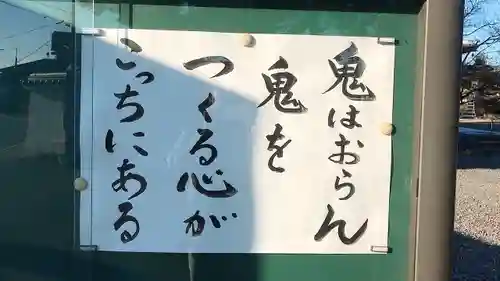 鬼はおらん
鬼を
つくる心が
こっちにある